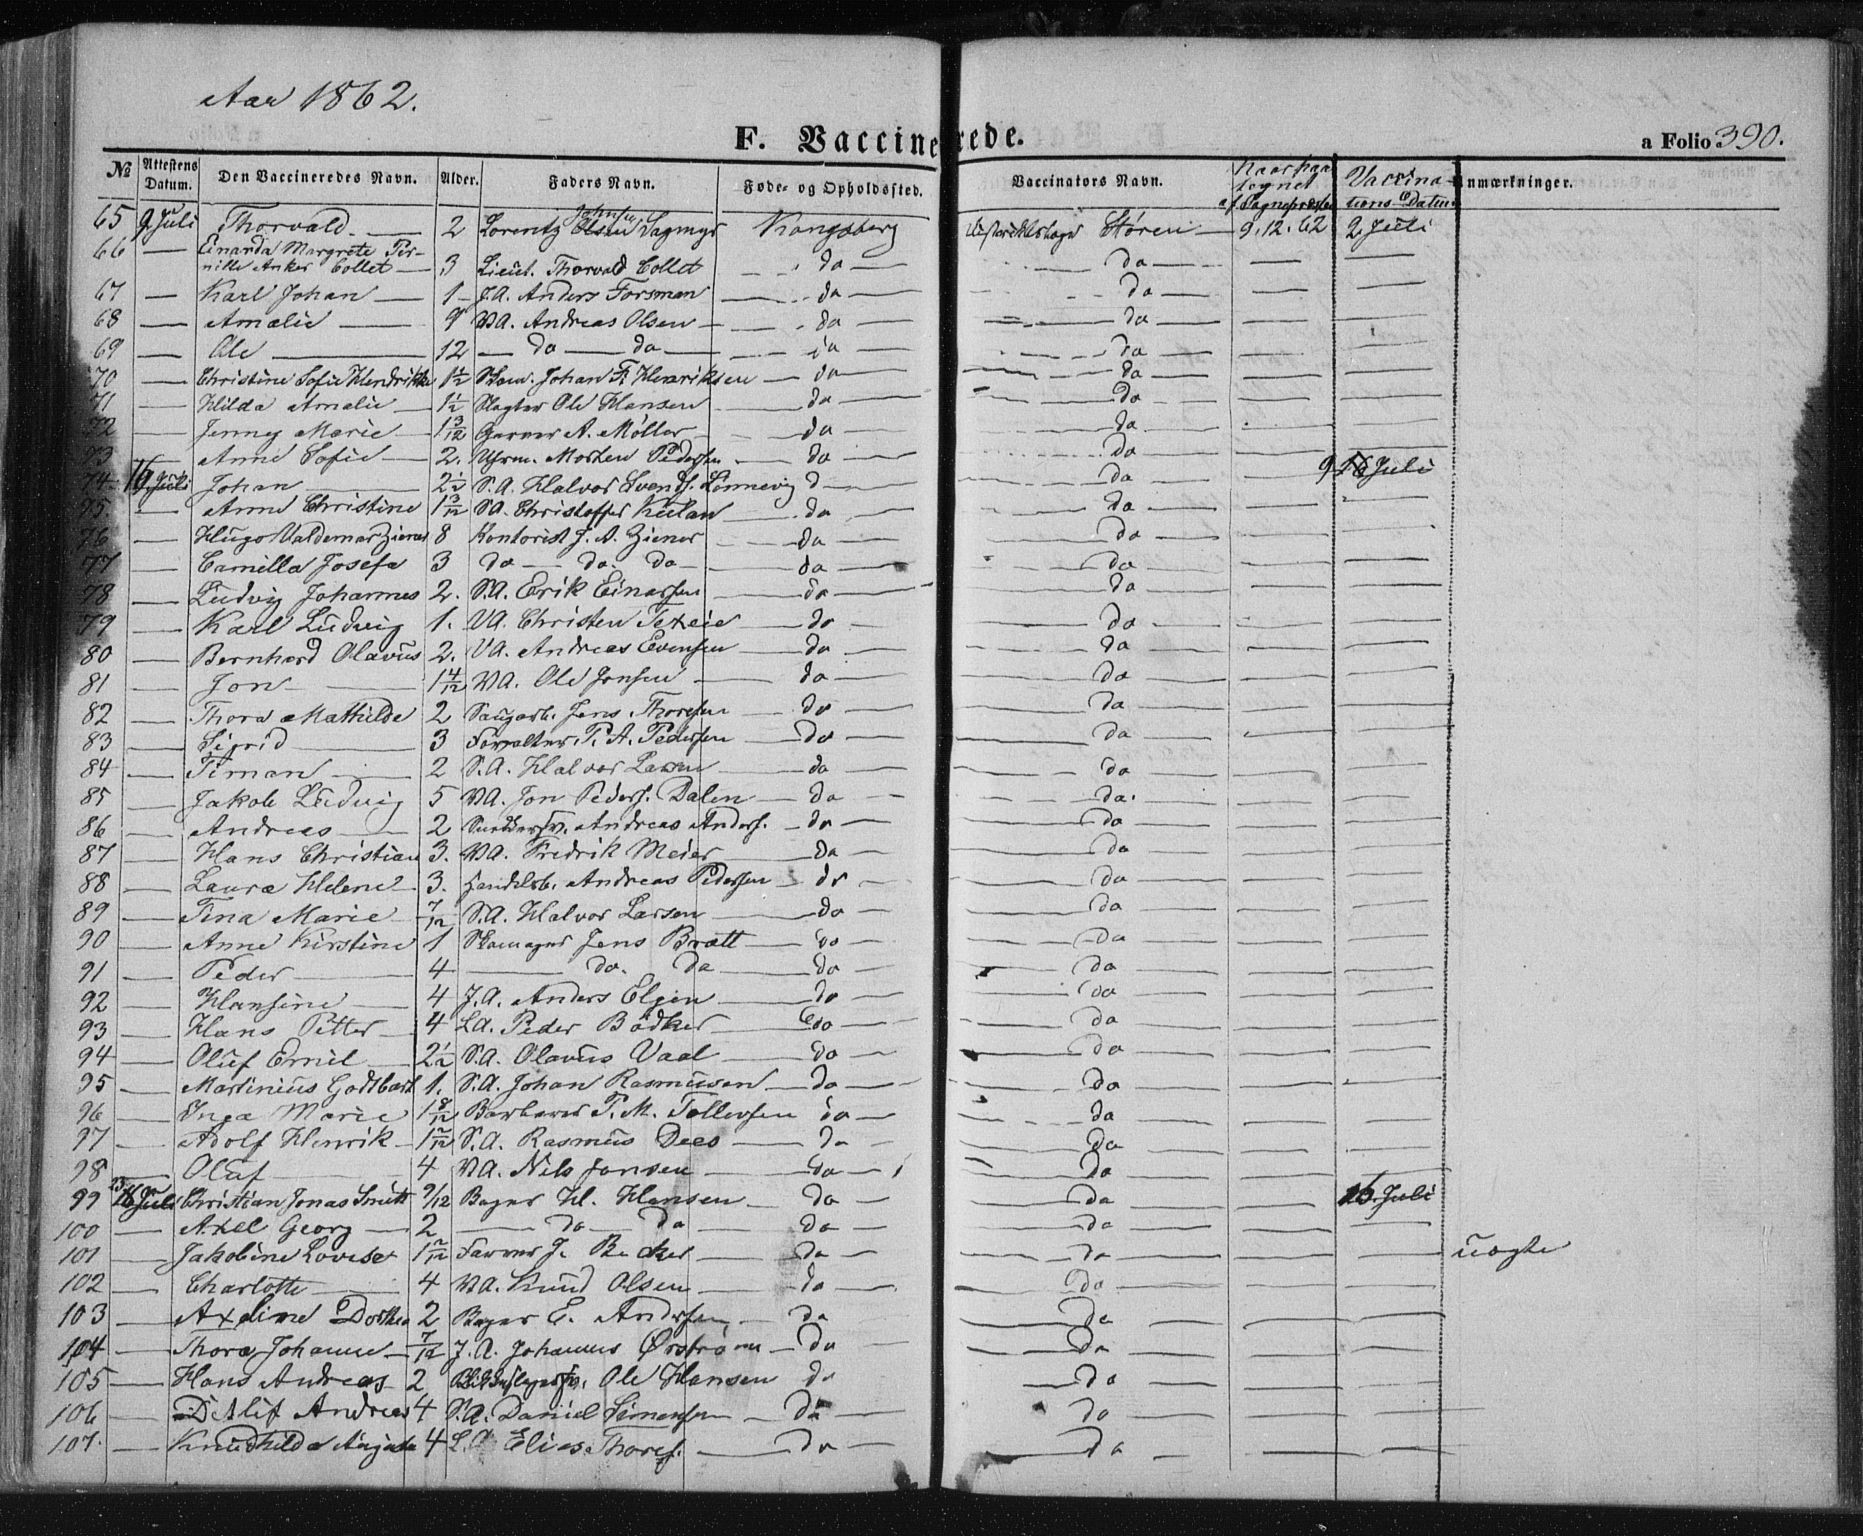 Aar 1862.
F. Vaccinerede.
a Folio 390.
No Attestens Datum. Den Vaccineredes Navn. Alder. Faders Navn. Føde- og Opholdssted. Vaccinators Navn. Vaccinations Datum Anmærkninger.
65 9 Juli Thorvald 2 Lorentz Olsen Sagmyr Kongsberg Støren 9.12.62 2 Juli
66 — Einarda Margrete Per-
nille Anker Collet — 3 Lieut. Thorvald Collet do — do
67 — Karl Johan — 1 J.A. Anders Forsman — do — do
68 — Amalie — 9 VA. Andreas Olsen — do — do
69 — Ole — 12 — do — do — do — do
70 — Christine Sofie Hendrikke 1½ Skom. Johan F. Henriksen — do — do
71 — Hilda Amalie — 1½ Slagter Ole Hansen — do — do
72 — Jenny Marie — 1 3/12 Garver A. Møller — do — do
73 — Anne Sofie — 2. Uhrm. Morten Pedersen — do — do
74 16 Juli Johan — 2½ S.A. Halvor Svends. Lønnevig d — do — 9 Juli
75 — Anne Christine 1 3/12 SA. Christoffer — do — do
76 — Hugo Valdemar Ziener 8 Kontorist J. A. Ziener — do — do
77 — Camilla Josefa 3 do — do. do — do — do
78 — Ludvig Johannes 2. S.A. Erik Einarsen — do — do
79 — Karl Ludvig 1. VA. Christen — do — do
80 — Bernhard Olavus 2. VA. Andreas Evensen — do — do
81 — Jon — 1 4/12 VA. Ole Jonsen — do — do
82 — Thora Mathilde 2 Saugarb. Jens Thoresen — do — do
83 — Sigrid — 3 Forvalter P. A. Pedersen — do — do
84 — Timan — 2 S.A. Halvor Larsen — do — do
85 — Jakob Ludvig 5 VA. Jon Peders. Dalen — do — do.
86 — Andreas — 2 Snedkersv. Andreas Anders. — do — do
87 — Hans Christian 3. VA. Fredrik Meier — do — do
88 — Laura Helene 3. Handelsb. Andreas Pedersen — do — do
89 — Tina Marie 7/12 S.A. Halvor Larsen — do — do
90 — Anne Kirstine 1 Skomager Jens Bratt — do — do
91 — Peder — 4 — do. do — do — do
92 — Hansine — 4 J.A. Anders Elgen — do — do
93 — Hans Petter 4 LA. Peder Bødker — do — do
94 — Oluf Emil — 2½ S.A. Olavus Vaal — do — do
95 — Martinius Godtbart 1. S.A. Johan Rasmusen — do — do
96 — Inga Marie 1 8/12 Barberer P. M. Tollevsen do — do
97 — Adolf Henrik 1 2/12 S.A. Rasmus Dees — do — do
98 — Oluf — 4 VA. Nils Jonsen — do — do
99 Juli Christian Jonas Smitt 9/12 Bager H. Hansen — do — do — 16. Juli
100 — Axel Georg — 2 — do — do — do — do
101 — Jakobine Lovise 1 2/12 Farver J. Becker — do — do — uægte
102 — Charlotte — 4 VA. Knud Olsen — do — do
103 — Axeline Dorthea 2 Bager E. Andersen — do — do
104 — Thora Johanne 7/12 J.A. Johannes Ørstrøm — do — do
105 — Hans Andreas 2 Ole Hansen do — do
106 — Detlif Andreas 4 S.A. Daniel Simensen — do — do
107. — Knudhilda 4 L.A. Elias Thores. — do — do